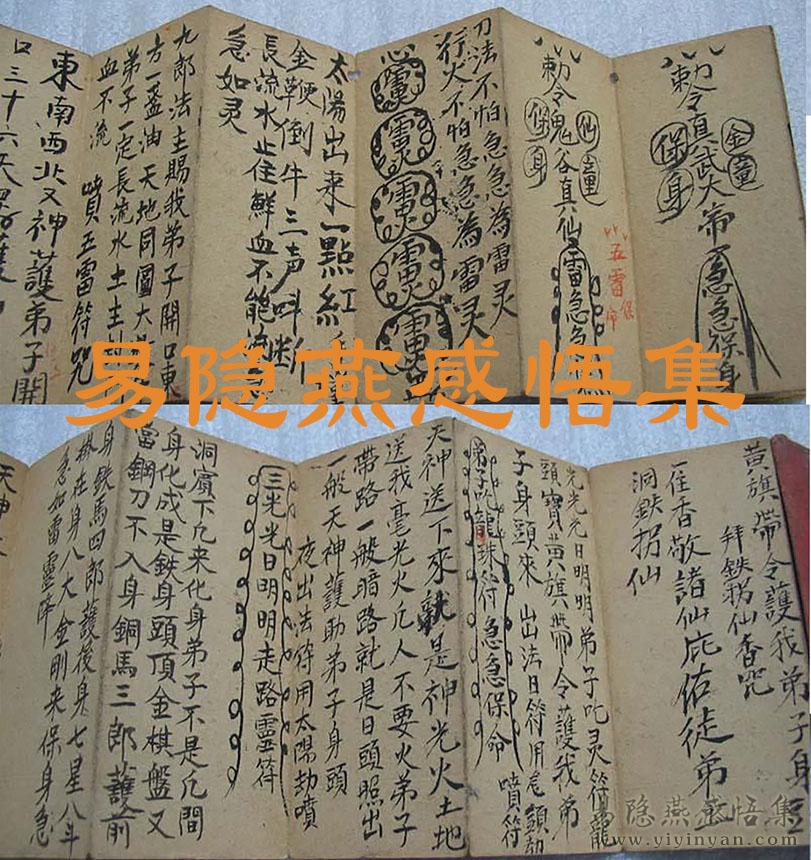 勅令真武大帝急急保身
金童
保身
勅令鬼谷真仙雷急急
仙童
保身
五雷
刀法不怕急急為雷灵
行火不怕急急為雷灵
太陽出来一點紅
金鞭倒牛三声叫
長流水止住鮮血不能流
急如灵
九郎法主賜我弟子開口東
方一盏油天地同圓大
弟子一定長流水土主
血不流 噴五雷符咒
東南西北又神護弟子開
口三十六天
易隐燕感悟集
黄旗帶令護我弟子身
拜鉄拐仙香咒
一隹香敬諸仙庇佑徒弟
洞鉄拐仙
光光光日明明弟子吃灵符龍
頭寶黄旗帶令護我弟
子身頭来 出法日符用
弟子吃龍珠符急急保命 噴符
天神送下來就是神光火土地
送我毫光火凢人不要火弟子
帶路一般暗路就是日頭照出
一般天神護助弟子身頭
夜出法符用太陽劫噴
三光光日明明走路靈符
洞賓下凢来化身弟子不是凢間
身化成是鉄身頭頂金棋盤又
當鋼刀不入身銅馬三郎護前
身鉄馬四郎護後身七星八斗
掛在身八大金剛来保身急
急如雷靈
天神
易隐燕感悟集
www.yiyinyan.com